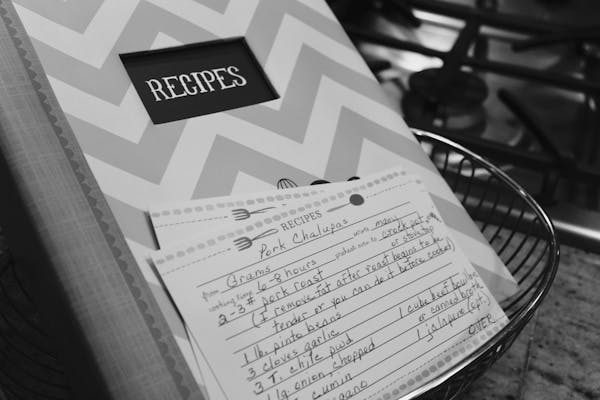 RECIPES
RECIPES
Pork Chalupas
from Grams serves many
cooking time 6-8 hours crock pot
or stovetop
2-3# pork roast
(I remove fat after roast begins to be
tender or you can do it before cooked)
1 lb. pinto beans 1 cube beef bouillon
3 cloves garlic or canned broth
3 T. chile pwd 1 jalapeno (opt.)
1 lg onion, chopped
cumin
OVER